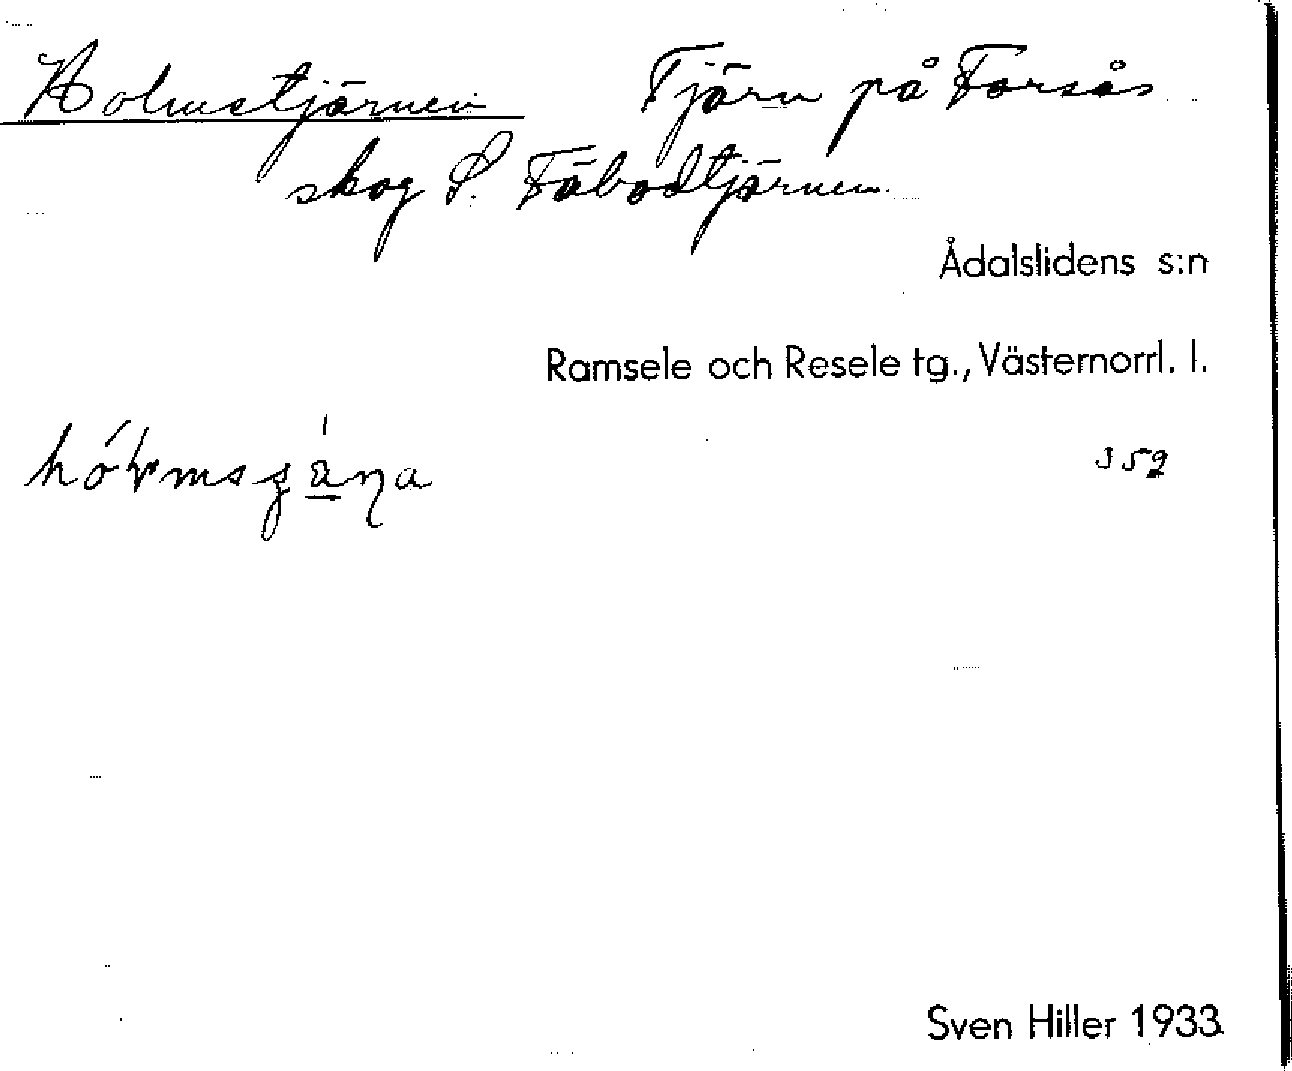 Holmstjärnen Tjärn på Forsås
skog S. Fäbodtjärnen.
Ådalslidens s:n
Ramsele och Resele tg., Västernorrl. l.
352
Sven Hiller 1933